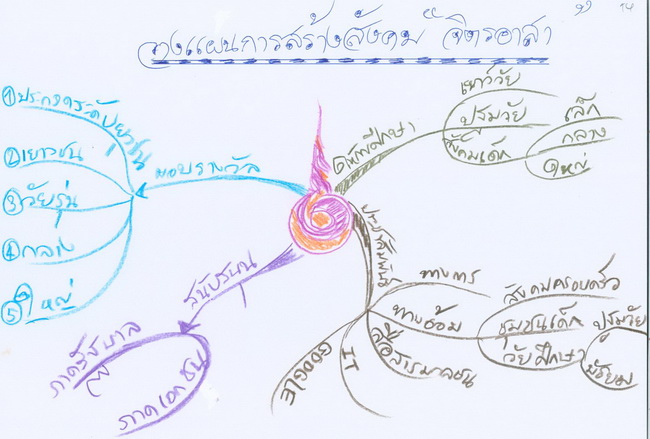 วางแผนการสร้างสังคม "จิตรอาสา
14
① ประกวดระดับเยาวชน
② เยาวชน
③ วัยรุ่น
④ กลาง
⑤ ใหญ่
มอบรางวัล
สนับสนุน
ภาครัฐบาล
ภาคเอกชน
ให้การศึกษา
เยาว์วัย
ปฐมวัย
สังคมเด็ก
เล็ก
กลาง
ใหญ่
ประชาสัมพันธ์
ทางตรง
ทางอ้อม
สังคมครอบครัว
ชุมชนเด็ก
วัยศึกษา
ปฐมวัย
มัธยม
สื่อสารมวลชน
IT
GOOGLE